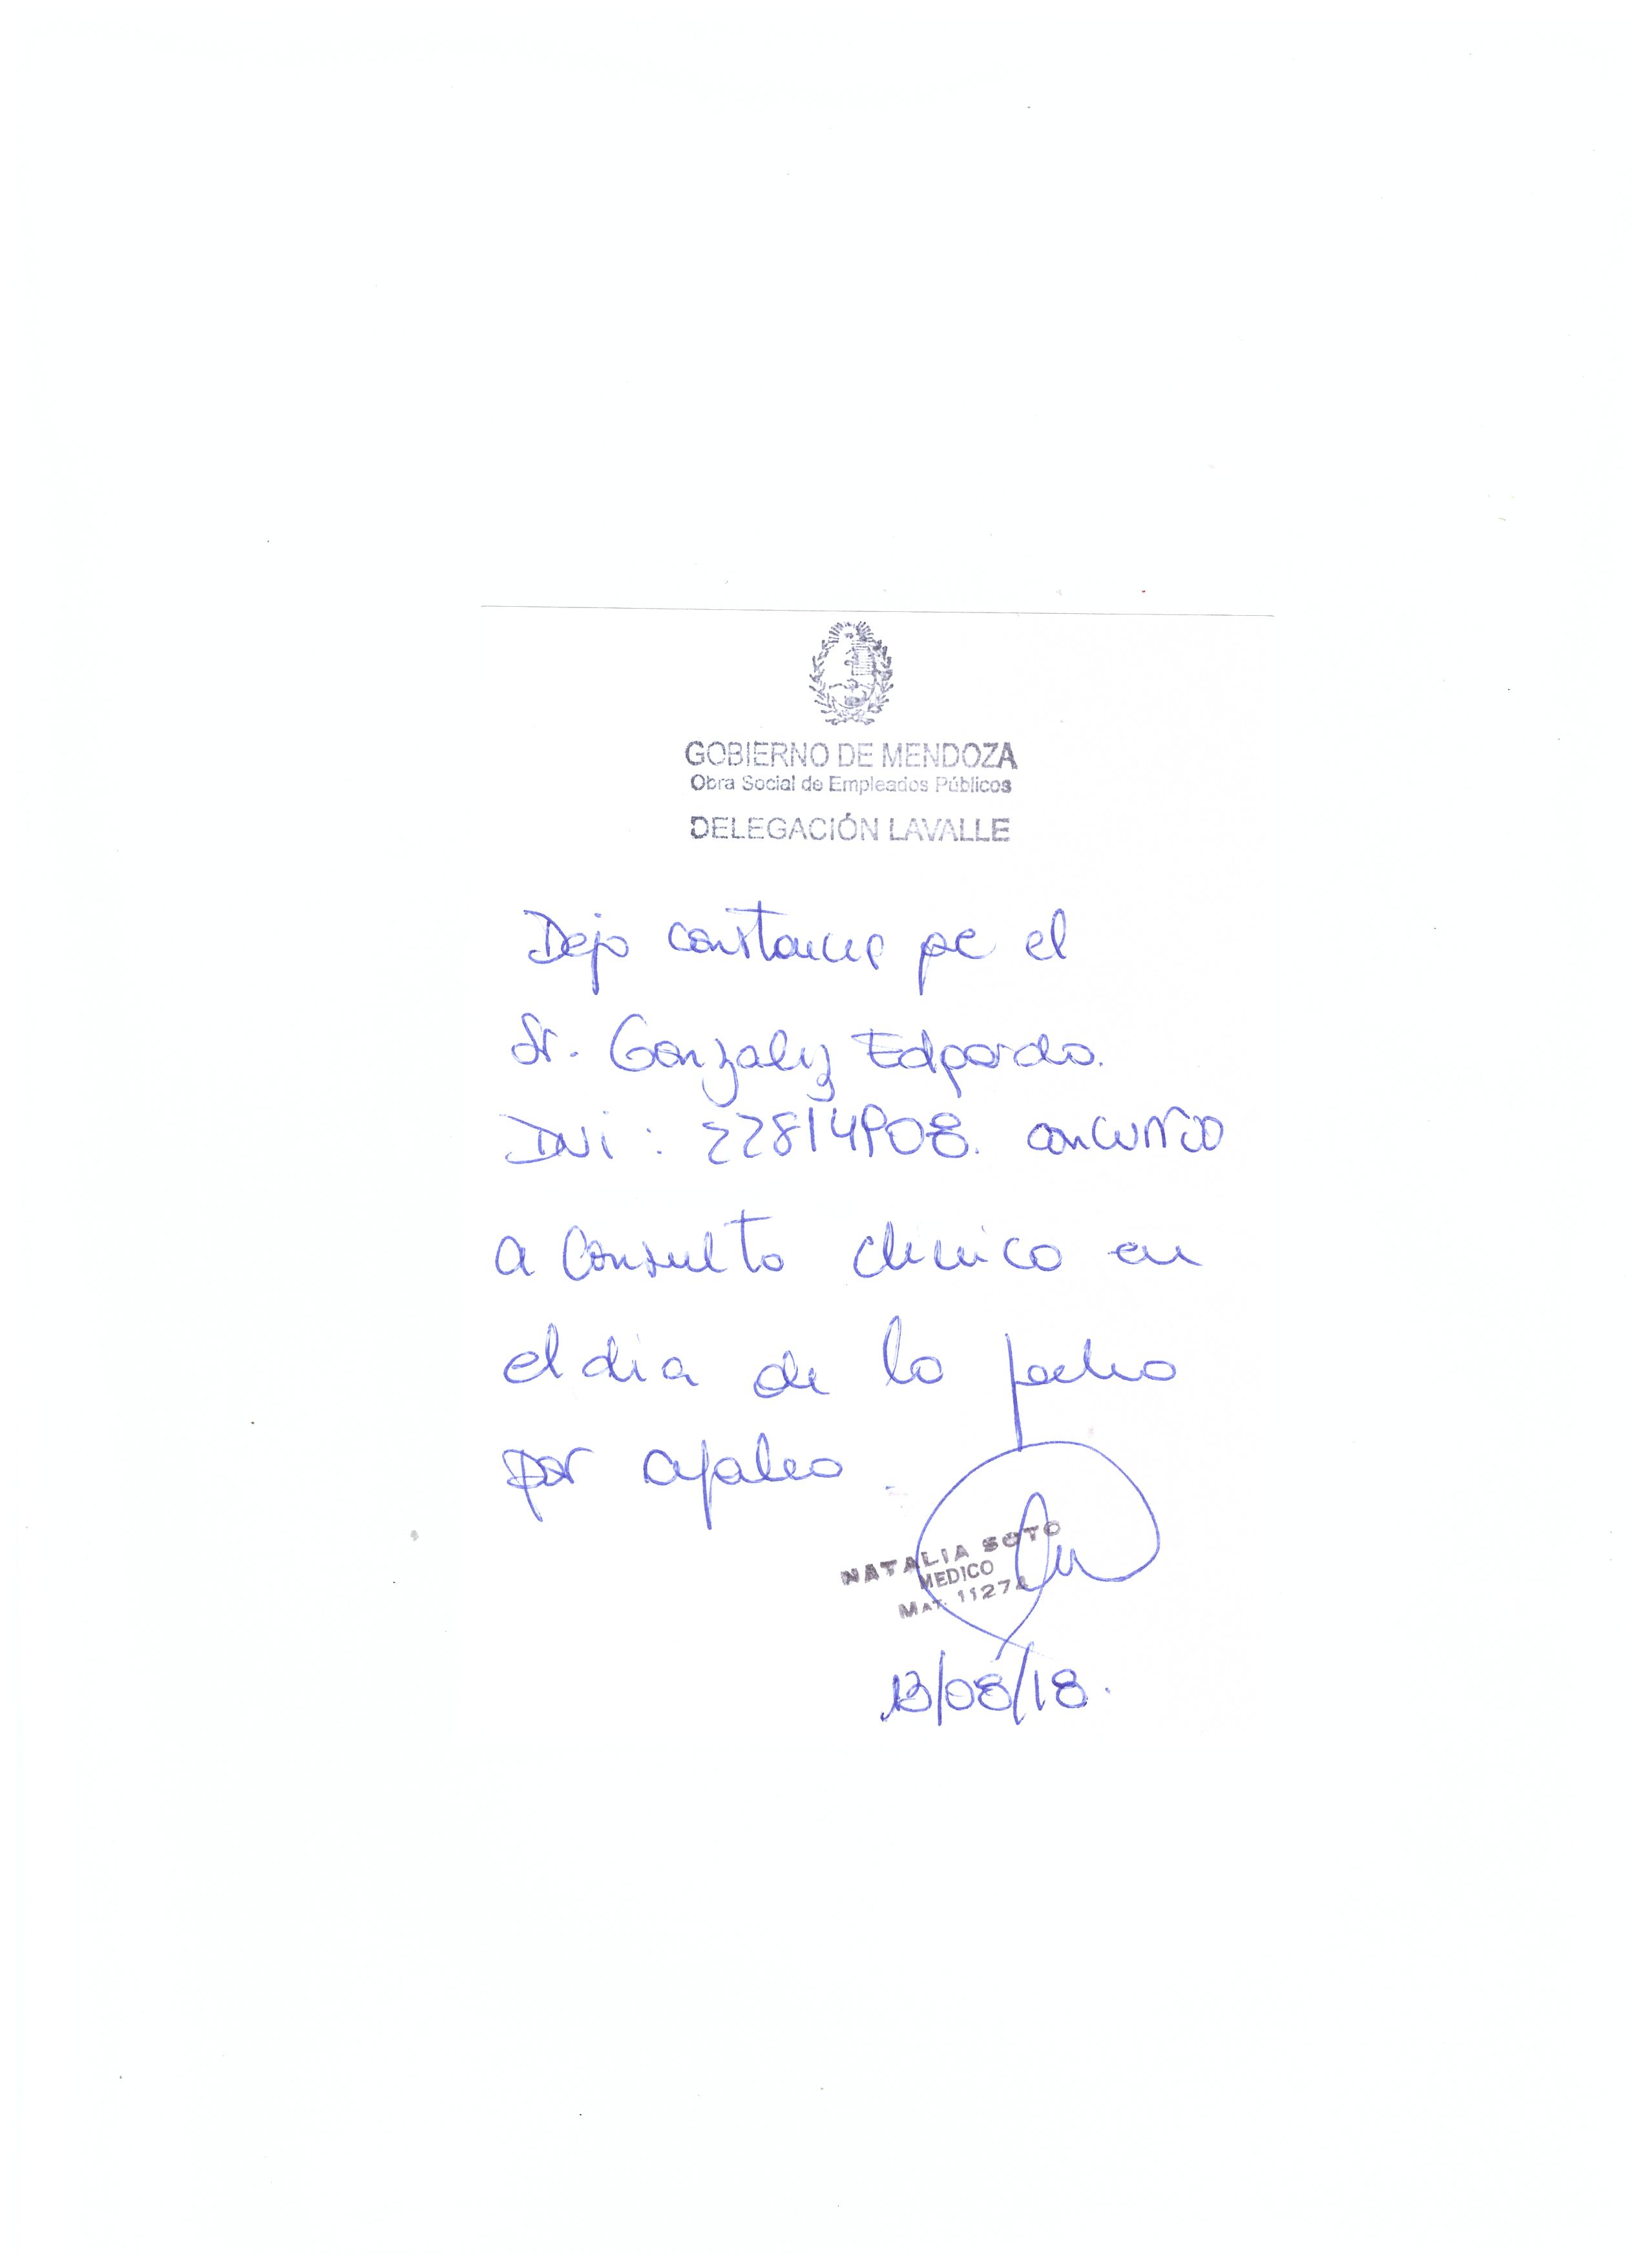 GOBIERNO DE MENDOZA
Obra Social de Empleados Públicos
DELEGACIÓN LAVALLE
Dejo constancia que el
Sr. Gonzalez Edgardo.
DNI: 22814908. concurrió
a consulta clinica en
el dia de la fecha
por cefalea.
NATALIA SOTO
MEDICO
MAT. 11274
13/08/18.